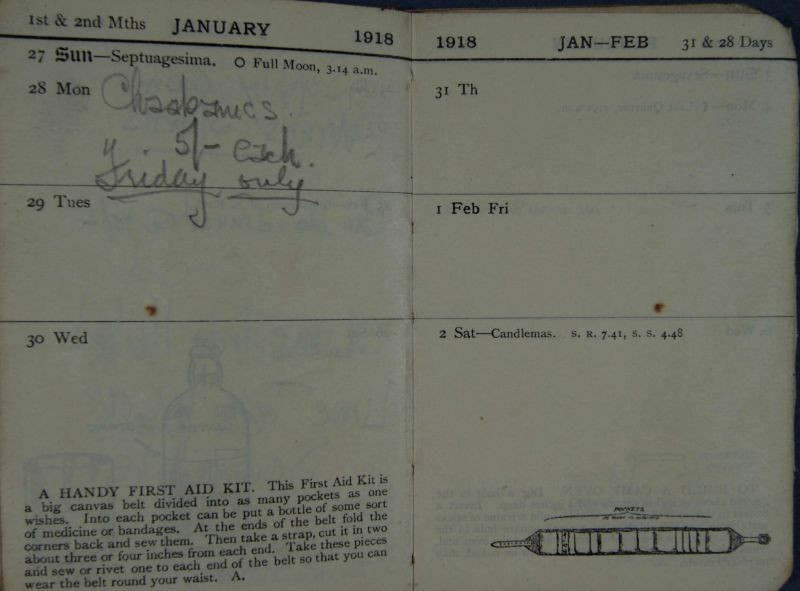 1st & 2nd Mths JANUARY 1918
27 Sun—Septuagesima. O Full Moon, 3.14 a.m.
28 Mon
5/- Each.
Friday only
29 Tues
30 Wed
A HANDY FIRST AID KIT. This First Aid Kit is
a big canvas belt divided into as many pockets as one
wishes. Into each pocket can be put a bottle of some sort
of medicine or bandages. At the ends of the belt fold the
corners back and sew them. Then take a strap, cut it in two
about three or four inches from each end. Take these pieces
and sew or rivet one to each end of the belt so that you can
wear the belt round your waist. A.
1918 JAN—FEB 31 & 28 Days
31 Th
1 Feb Fri
2 Sat—Candlemas. S. R. 7.41, S. S. 4.48
POCKETS